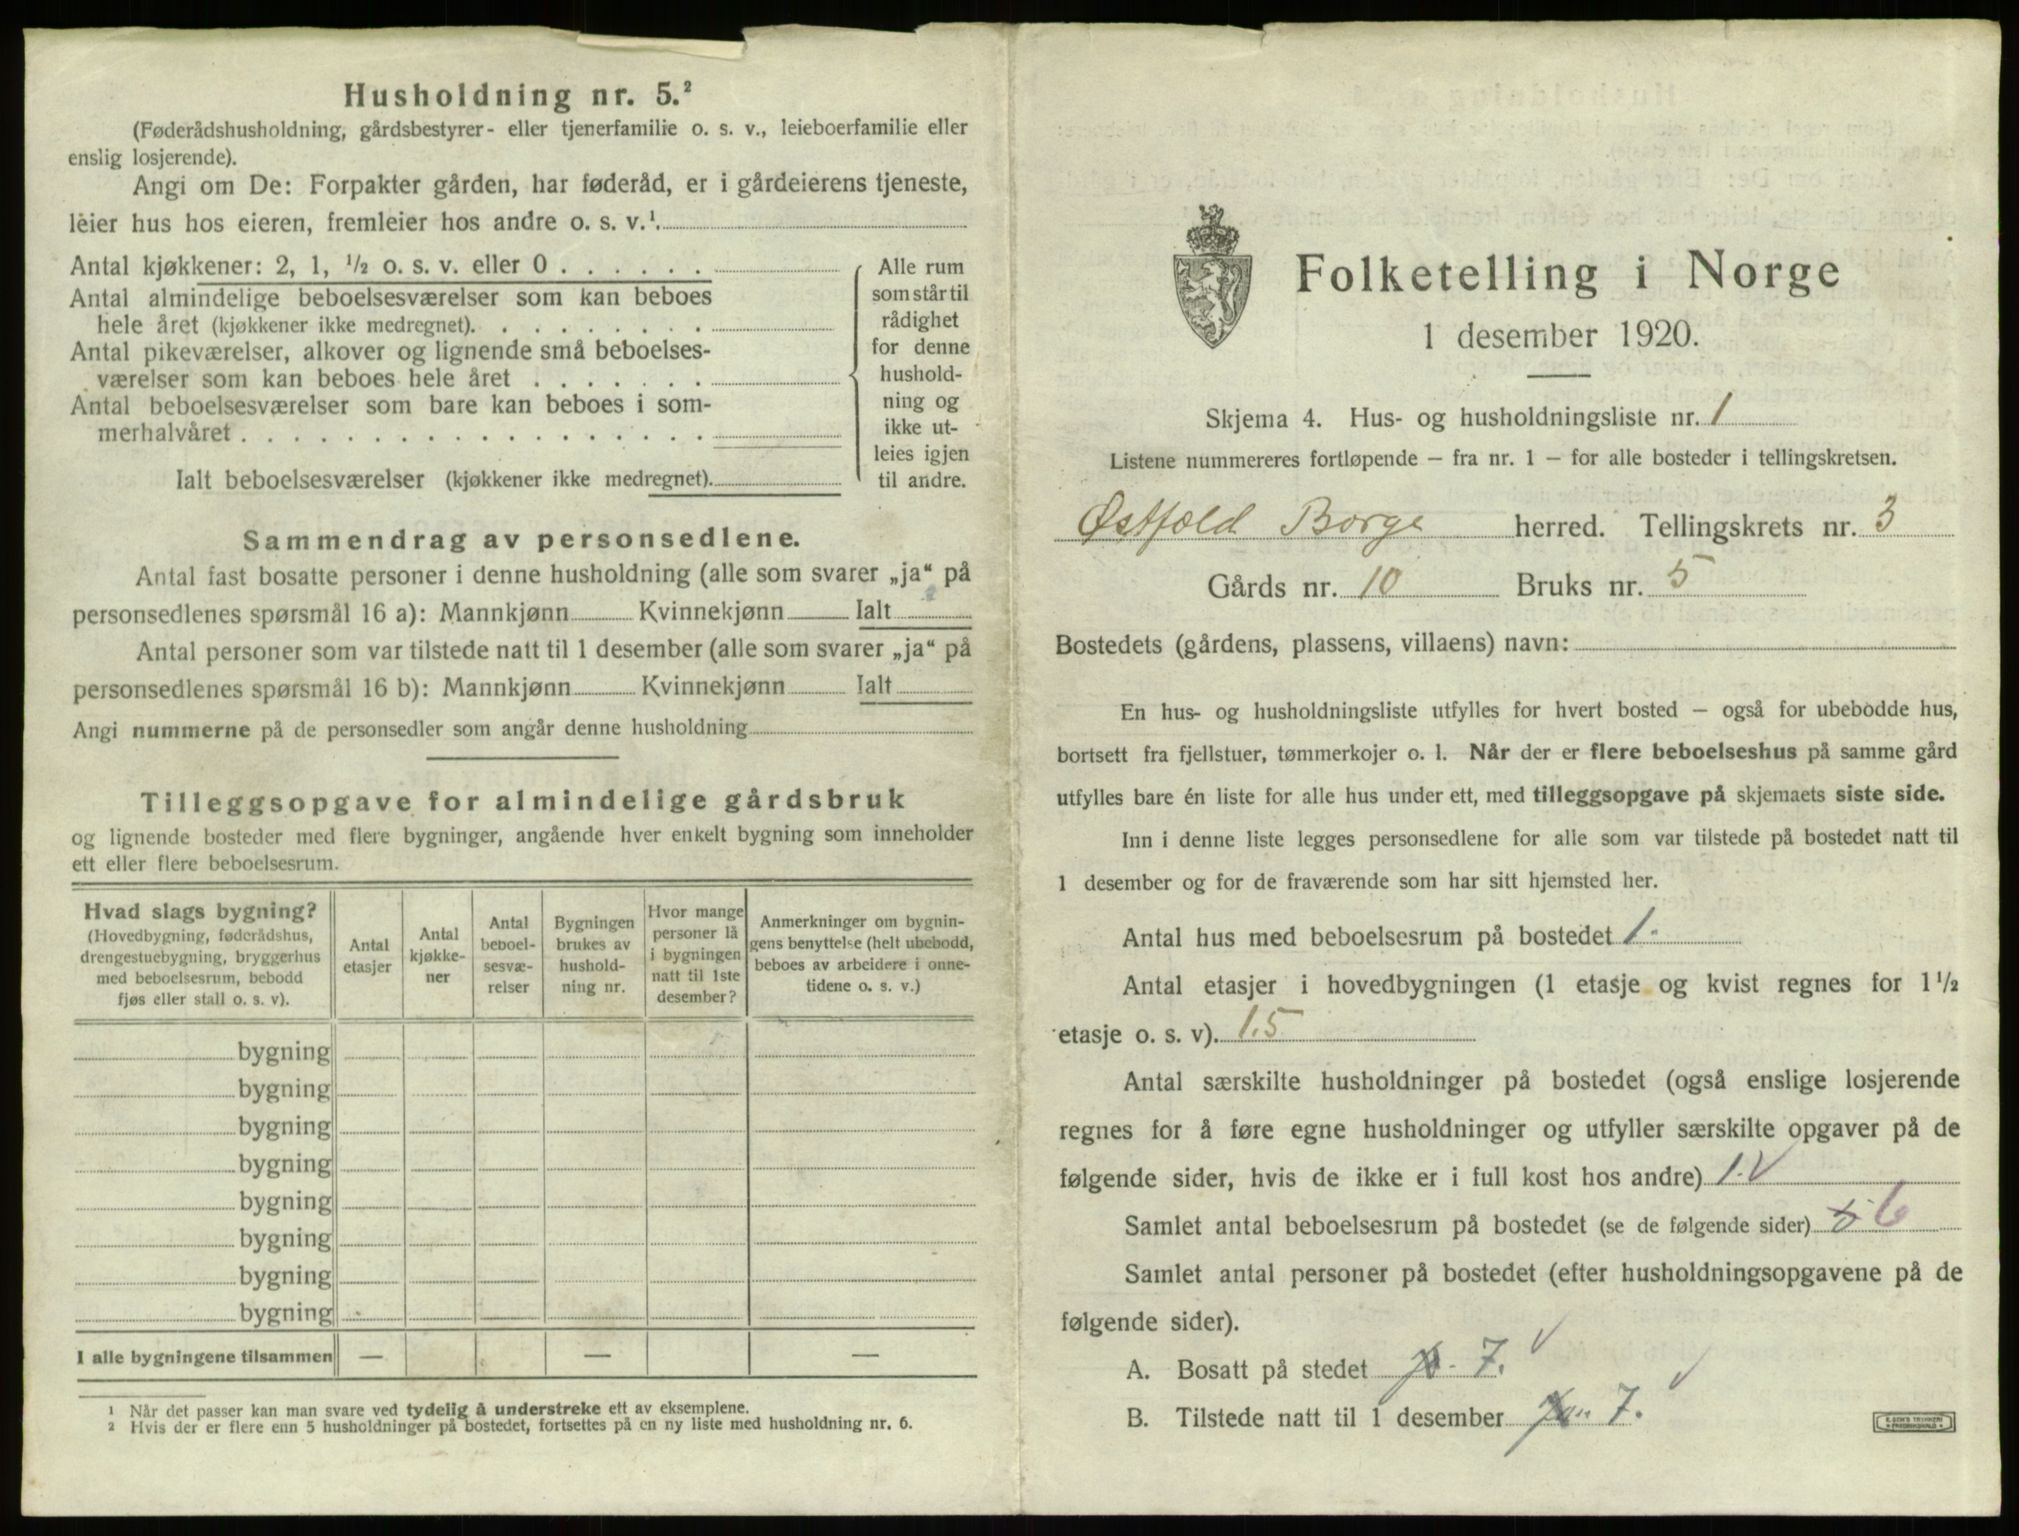 Husholdning nr. 5.²
(Føderådshusholdning, gårdsbestyrer- eller tjenerfamilie o. s. v., leieboerfamilie eller
enslig losjerende).
Angi om De: Forpakter gården, har føderåd, er i gårdeierens tjeneste,
leier hus hos eieren, fremleier hos andre o. s. v.¹
Antal kjøkkener: 2, 1, ½ o. s. v. eller 0
Antal almindelige beboelsesværelser som kan beboes
hele året (kjøkkener ikke medregnet).
Antal pikeværelser, alkover og lignende små beboelses-
værelser som kan beboes hele året
Antal beboelsesværelser som bare kan beboes i som-
merhalvåret
Ialt beboelsesværelser (kjøkkener ikke medregnet).
Alle rum
som står til
rådighet
for denne
hushold-
ning og
ikke ut-
leies igjen
til andre.
Sammendrag av personsedlene.
Antal fast bosatte personer i denne husholdning (alle som svarer „ja“ på
personsedlenes spørsmål 16 a): Mannkjønn Kvinnekjønn Ialt
Antal personer som var tilstede natt til 1 desember (alle som svarer „ja“ på
personsedlenes spørsmål 16 b): Mannkjønn Kvinnekjønn Ialt
Angi nummerne på de personsedler som angår denne husholdning
Tilleggsopgave for almindelige gårdsbruk
og lignende bosteder med flere bygninger, angående hver enkelt bygning som inneholder
ett eller flere beboelsesrum.
Hvad slags bygning?
(Hovedbygning, føderådshus,
drengestuebygning, bryggerhus
med beboelsesrum, bebodd
fjøs eller stall o. s. v).
Antal
etasjer
Antal
kjøkke-
ner
Antal
beboel-
sesvæ-
relser
Bygningen
brukes av
hushold-
ning nr.
Hvor mange
personer lå
i bygningen
natt til 1ste
desember?
Anmerkninger om bygnin-
gens benyttelse (helt ubebodd,
beboes av arbeidere i onne-
tidene o. s. v.)
bygning
bygning
bygning
bygning
bygning
bygning
bygning
bygning
I alle bygningene tilsammen — — —
¹ Når det passer kan man svare ved tydelig å understreke ett av eksemplene.
² Hvis der er flere enn 5 husholdninger på bostedet, fortsettes på en ny liste med husholdning nr. 6.
Folketelling i Norge
1 desember 1920.
Skjema 4. Hus- og husholdningsliste nr. 1
Listene nummereres fortløpende – fra nr. 1 – for alle bosteder i tellingskretsen.
Østfold Borge herred. Tellingskrets nr. 3
Gårds nr. 10 Bruks nr. 5
Bostedets (gårdens, plassens, villaens) navn:
En hus- og husholdningsliste utfylles for hvert bosted – også for ubebodde hus,
bortsett fra fjellstuer, tømmerkojer o. l. Når der er flere beboelseshus på samme gård
utfylles bare én liste for alle hus under ett, med tilleggsopgave på skjemaets siste side.
Inn i denne liste legges personsedlene for alle som var tilstede på bostedet natt til
1 desember og for de fraværende som har sitt hjemsted her.
Antal hus med beboelsesrum på bostedet 1.
Antal etasjer i hovedbygningen (1 etasje og kvist regnes for 1½
etasje o. s. v). 1.5
Antal særskilte husholdninger på bostedet (også enslige losjerende
regnes for å føre egne husholdninger og utfyller særskilte opgaver på de
følgende sider, hvis de ikke er i full kost hos andre) 1.
Samlet antal beboelsesrum på bostedet (se de følgende sider) 6
Samlet antal personer på bostedet (efter husholdningsopgavene på de
følgende sider).
A. Bosatt på stedet 7.
B. Tilstede natt til 1 desember 7.